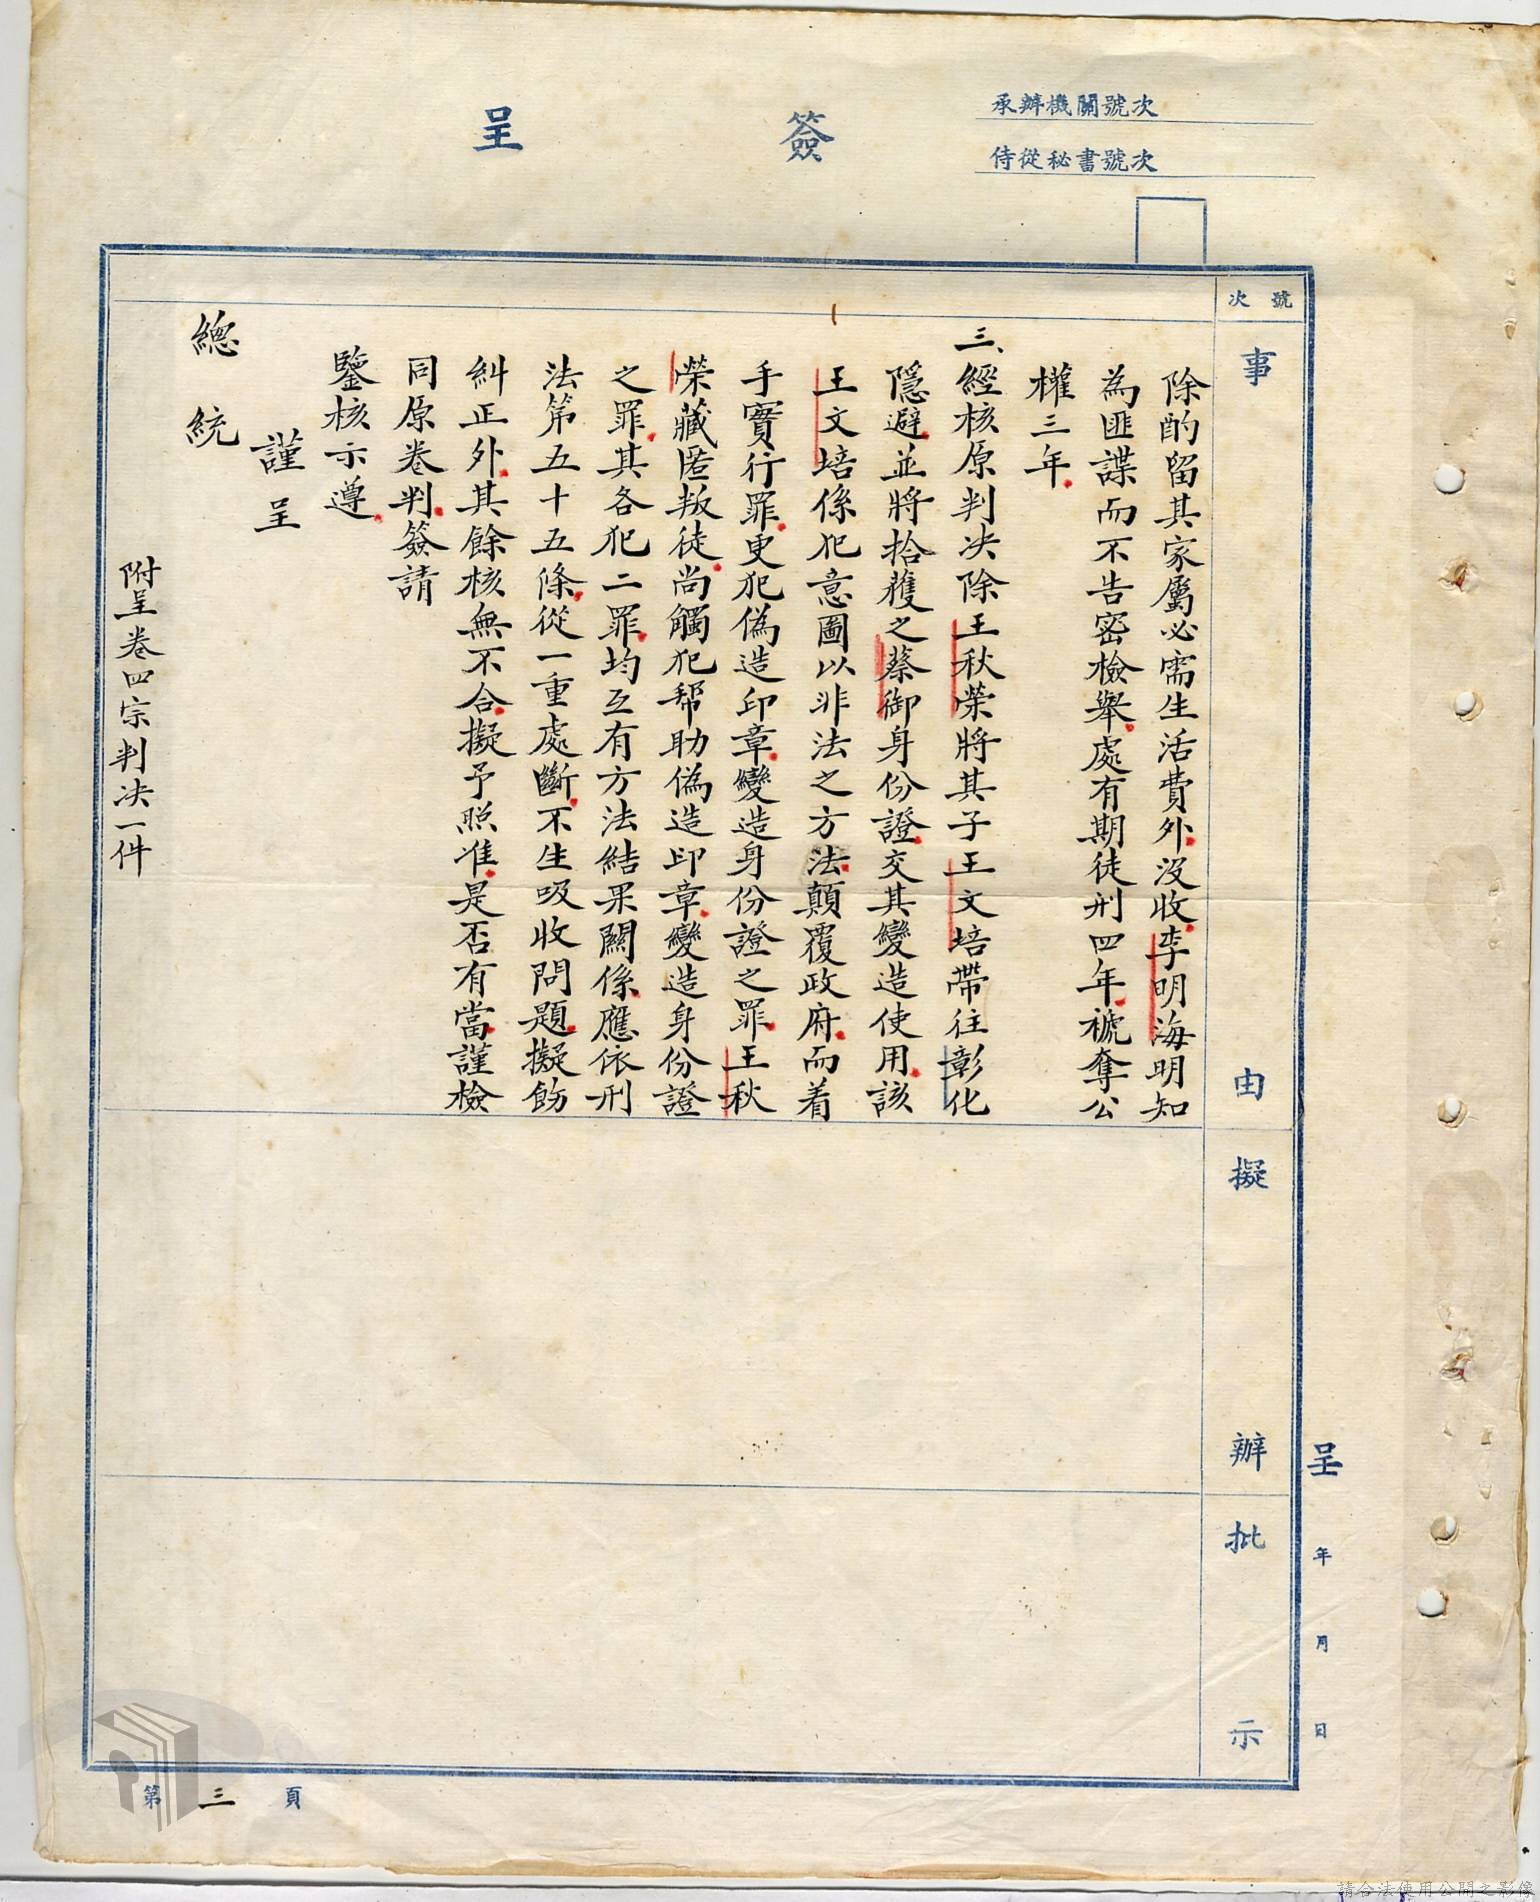 簽呈
承辦機關號次
侍從秘書號次
號次
事由
擬辦
批示
呈 年 月 日
除酌留其家屬必需生活費外沒收李明海明知
為匪諜而不告密檢舉處有期徒刑四年褫奪公
權三年
三、經核原判決除王秋榮將其子王文培帶往彰化
隱避並將拾獲之蔡御身份證交其變造使用該
王文培係犯意圖以非法之方法顛覆政府而着
手實行罪更犯偽造印章變造身份證之罪王秋
榮藏匿叛徒尚觸犯幫助偽造印章變造身份證
之罪其各犯二罪均互有方法結果關係應依刑
法第五十五條從一重處斷不生吸收問題擬飭
糾正外其餘核無不合擬予照准是否有當謹檢
同原卷判簽請
鑒核示遵
謹呈
總統
附呈卷四宗判決一件
第三頁
請合法使用公開之影像